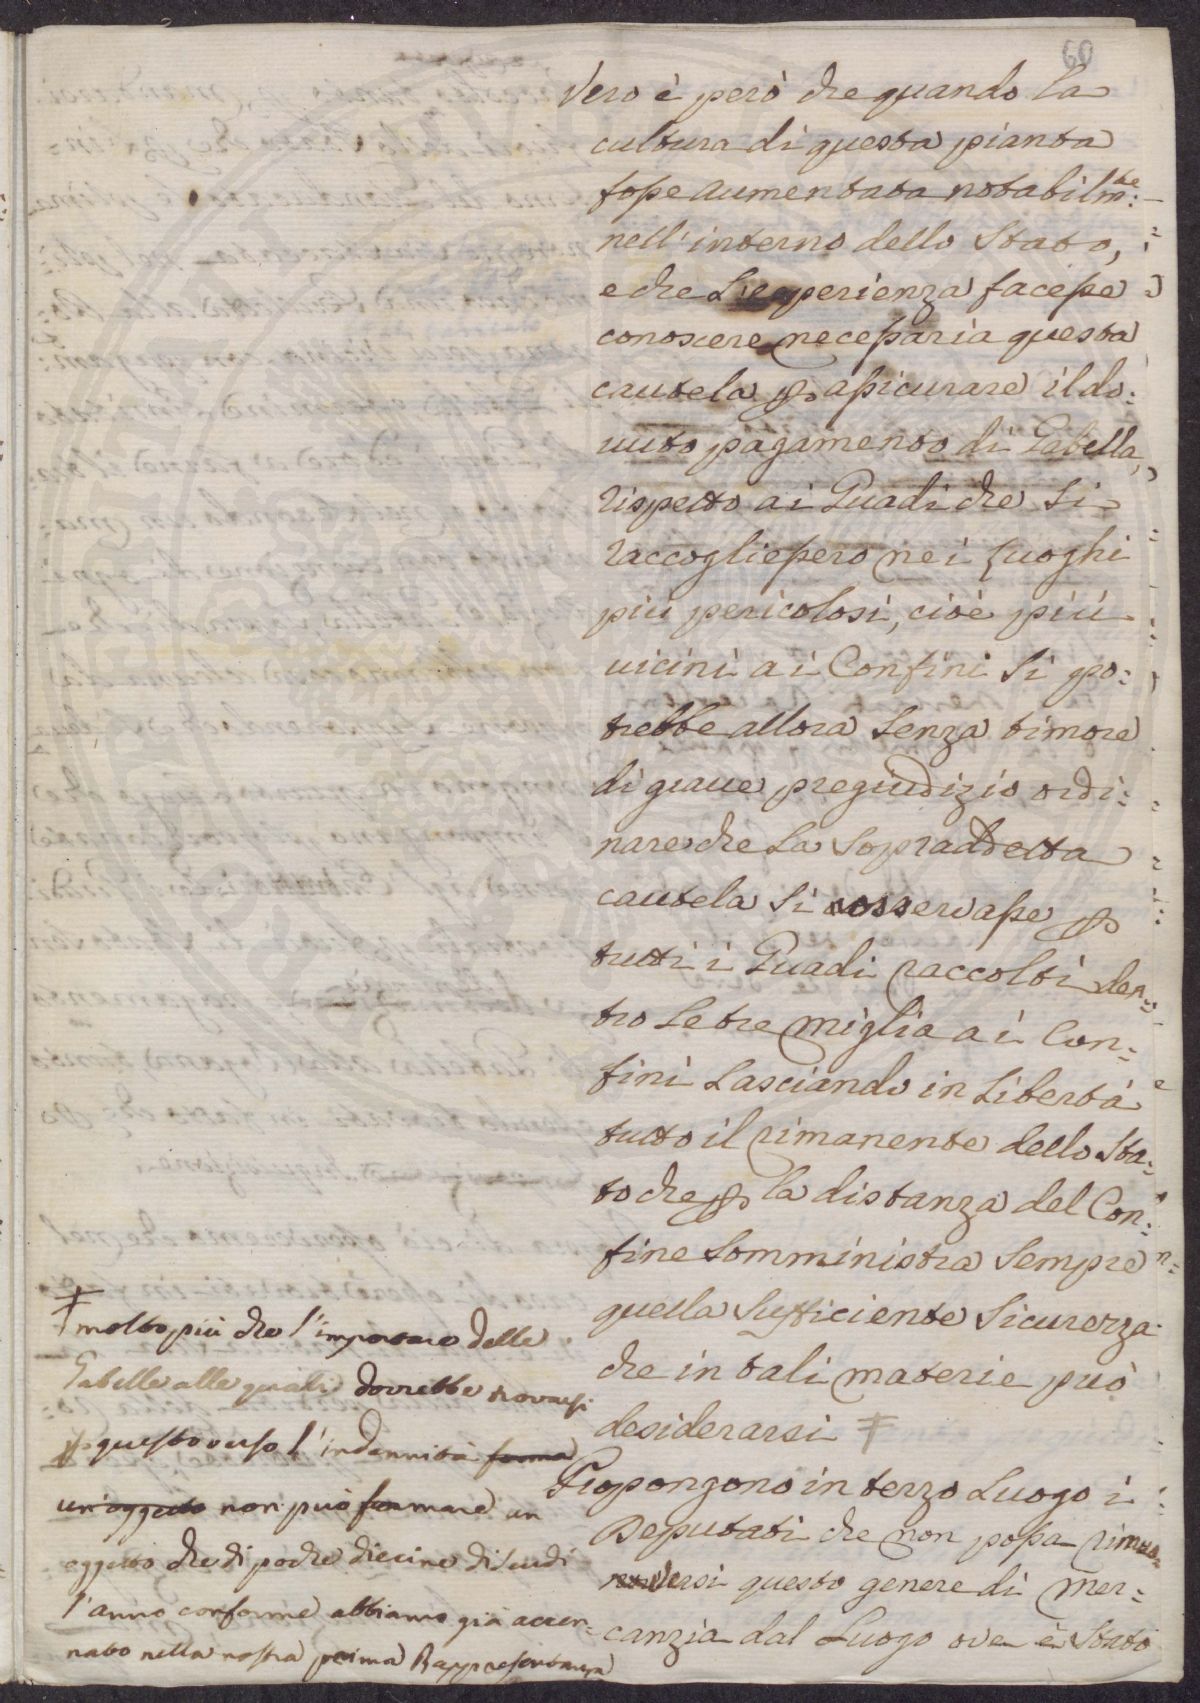 60
Vero è però che quando la
cultura di questa pianta
fosse aumentata notabilm:te
nell'interno dello Stato,
e che L'esperienza facesse
conoscere necessaria questa
cautela p assicurare il do:
vuto pagamento di Gabella,
rispetto ai Guadi che si
raccogliessero nei Luoghi
più pericolosi, cioè più
vicini ai Confini si po:
trebbe allora senza timore
di grave pregiudizio ordi:
nare che la sopraddetta
cautela si osservasse p
tutti i Guadi raccolti den:
tro le tre miglia ai Con:
fini Lasciando in Libertà
tutto il rimanente dello Sta:
to che p la distanza del Con:
fine somministra sempre
quella sufficiente sicurezza
che in tali materie può
desiderarsi ‡
Propongono in terzo Luogo i
Deputati che non possa rimuo:
versi questo genere di Mer:
canzia dal Luogo ove è stato
‡ molto più che l'importare delle
Gabelle alle quali dovrebbe trovarsi
p questo verso l'indennità forma
un'oggetto non può formare un
oggetto che di poche diecine di Scudi
l'anno conforme abbiamo già accen-
nato nella nostra prima Rappresentanza